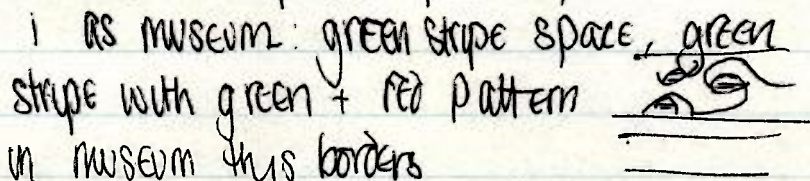 i as museum: green stripe space, green
stripe with green + red pattern
in museum this borders